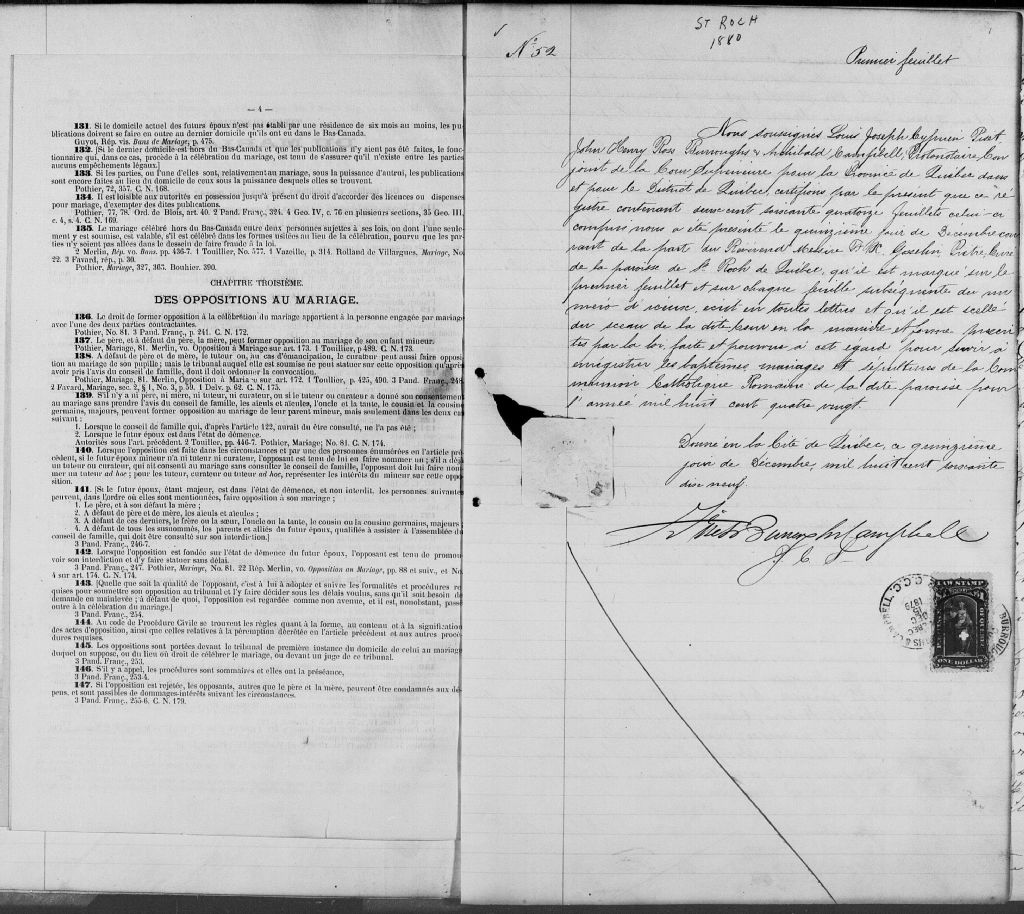 — 4 —
131. Si le domicile actuel des futurs époux n'est pas établi par une résidence de six mois au moins, les pu-
blications doivent se faire en outre au dernier domicile qu'ils ont eu dans le Bas-Canada.
Guyot, Rép. vis. Bans de Mariage, p. 475.
132. [Si le dernier domicile est hors du Bas-Canada et que les publications n'y aient pas été faites, le fonc-
tionnaire qui, dans ce cas, procède à la célébration du mariage, est tenu de s'assurer qu'il n'existe entre les parties
aucuns empêchements légaux.]
133. Si les parties, ou l'une d'elles sont, relativement au mariage, sous la puissance d'autrui, les publications
sont encore faites au lieu du domicile de ceux sous la puissance desquels elles se trouvent.
Pothier, 72, 357. C. N. 168.
134. Il est loisible aux autorités en possession jusqu'à présent du droit d'accorder des licences ou dispenses
pour mariage, d'exempter des dites publications.
Pothier, 77, 78. Ord. de Blois, art. 40. 2 Pand. Franç., 324. 4 Geo. IV, c. 76 en plusieurs sections, 35 Geo. III,
c. 4, s. 4. C. N. 169.
135. Le mariage célébré hors du Bas-Canada entre deux personnes sujettes à ses lois, ou dont l'une seule-
ment y est soumise, est valable, s'il est célébré dans les formes usitées au lieu de la célébration, pourvu que les par-
ties n'y soient pas allées dans le dessein de faire fraude à la loi.
2 Merlin, Rép. vo. Bans. pp. 436-7. 1 Touiller, No. 577. 1 Vazeille, p. 314. Rolland de Villargues, Mariage, No.
22. 3 Favard, rép., p. 30.
Pothier, Mariage, 327, 363. Bouhier. 390.
CHAPITRE TROISIÈME.
DES OPPOSITIONS AU MARIAGE.
136. Le droit de former opposition à la célébration du mariage appartient à la personne engagée par mariage
avec l'une des deux parties contractantes.
Pothier, No. 81. 3 Pand. Franç., p. 241. C. N. 172.
137. Le père, et à défaut du père, la mère, peut former opposition au mariage de son enfant mineur.
Pothier, Mariage, 81. Merlin, vo. Opposition à Mariage sur art. 173. 1 Touillier, p 489. C. N. 173.
138. A défaut de père et de mère, le tuteur ou, au cas d'émancipation, le curateur peut aussi faire opposi-
tion au mariage de son pupille; mais le tribunal auquel elle est soumise ne peut statuer sur cette opposition qu'après
avoir pris l'avis du conseil de famille, dont il doit ordonner la convocation.
Pothier, Mariage, 81. Merlin, Opposition à Maria e sur art. 172. 1 Toullier, p. 425, 490. 3 Pand. Franç., 248
2 Favard, Mariage, sec. 2, § 1, No. 3, p. 59. 1 Delv. p. 62. C. N. 175.
139. S'il n'y a ni père, ni mère, ni tuteur, ni curateur, ou si le tuteur ou curateur a donné son consentement
au mariage sans prendre l'avis du conseil de famille, les aïeuls et aïeules, l'oncle et la tante, le cousin et la cousine
germains, majeurs, peuvent former opposition au mariage de leur parent mineur, mais seulement dans les deux cas
suivant :
1. Lorsque le conseil de famille qui, d'après l'article 122, aurait du être consulté, ne l'a pas été ;
2. Lorsque le futur époux est dans l'état de démence.
Autorités sous l'art. précédent. 2 Touiller, pp. 446-7. Pothier, Mariage; No. 81. C. N. 174.
140. Lorsque l'opposition est faite dans les circonstances et par une des personnes énumérées en l'article pré-
cédent, si le futur époux mineur n'a ni tuteur ni curateur, l'opposant est tenu de lui en faire nommer un ; s'il a déjà
un tuteur ou curateur, qui ait consenti au mariage sans consulter le conseil de famille, l'opposant doit lui faire nom-
mer un tuteur ad hoc ; pour les tuteur, curateur ou tuteur ad hoc, représenter les intérêts du mineur sur cette oppo-
sition.
141. [Si le futur époux, étant majeur, est dans l'état de démence, et non interdit, les personnes suivantes
peuvent, dans l'ordre où elles sont mentionnées, faire opposition à son mariage ;
1. Le père, et à son défaut la mère ;
2. A défaut de père et de mère, les aïeuls et aïeules ;
3. A défaut de ces derniers, le frère ou la sœur, l'oncle ou la tante, le cousin ou la cousine germains, majeurs ;
4. A défaut de tous les susnommés, les parents et alliés du futur époux, qualifiés à assister à l'assemblée du
conseil de famille, qui doit être consulté sur son interdiction.]
3 Pand. Franç., 246-7.
142. Lorsque l'opposition est fondée sur l'état de démence du futur époux, l'opposant est tenu de promou-
voir son interdiction et d'y faire statuer sans délai.
3 Pand. Franç., 247. Pothier, Mariage, No. 81. 22 Rép. Merlin, vo. Opposition au Mariage, pp. 88 et suiv., et No.
4 sur art. 174. C. N. 174.
143. [Quelque que soit la qualité de l'opposant, c'est à lui à adopter et suivre les formalités et procédures re-
quises pour soumettre son opposition au tribunal et l'y faire décider sous les délais voulus, sans qu'il soit besoin de
demande en mainlevée ; à défaut de quoi, l'opposition est regardée comme non avenue, et il est, nonobstant, passé
outre à la célébration du mariage.]
3 Pand. Franç., 254.
144. Au code de Procédure Civile se trouvent les règles quant à la forme, au contenu et à la signification
des actes d'opposition, ainsi que celles relatives à la péremption décrétée en l'article précédent et aux autres procé-
dures requises.
145. Les oppositions sont portées devant le tribunal de première instance du domicile de celui au mariage
duquel on suppose, ou du lieu où droit de célébrer le mariage, ou devant un juge de ce tribunal.
3 Pand. Franç., 253.
146. S'il y a appel, les procédures sont sommaires et elles ont la préséance,
3 Pand. Franç., 253-4.
147. Si l'opposition est rejetée, les opposants, autres que le père et la mère, peuvent être condamnés aux dé-
pens, et sont passibles de dommages-intérêts suivant les circonstances.
3 Pand. Franç., 255-6. C. N. 179.
St ROCH
1880
No 52
Premier feuillet
Nous soussignés Louis Joseph Cyprien Fiset
John Henry Ross Burroughs & Archibald Campbell, Protonotaire Con
joint de la Cour Supérieure pour la Province de Québec dans
et pour le District de Québec, certifions par le présent que ce "ré
gistre contenant deux cent soixante quatorze feuillet celui-ci
compris nous a été présenté le quinzième jour de Décembre cou
rant de la part du Révérend Messire D. R. Gosselin Prêtre, Curé
de la paroisse de St Roch de Québec, qu'il est marqué sur le
premier feuillet et sur chaque feuille subséquente du nu
méro d'icieux, écrit en toutes lettres et qu'il est scellé
du sceau de la dite Cour en la manière et forme prescri
tes par la loi, faite et pourvue à cet égard pour servir à
enregistrer les baptêmes, mariages et sépultures de la Com
munion Catholique Romaine de la dite paroisse pour
l'année mil huit cent quatre vingt.
Donné en la Cité de Québec, ce quinzième
jour de Décembre, mil huit cent soixante
dix neuf.
Fiset Burroughs Campbell
P. C. S.
LAW STAMP
ONE DOLLAR
DEC
1879